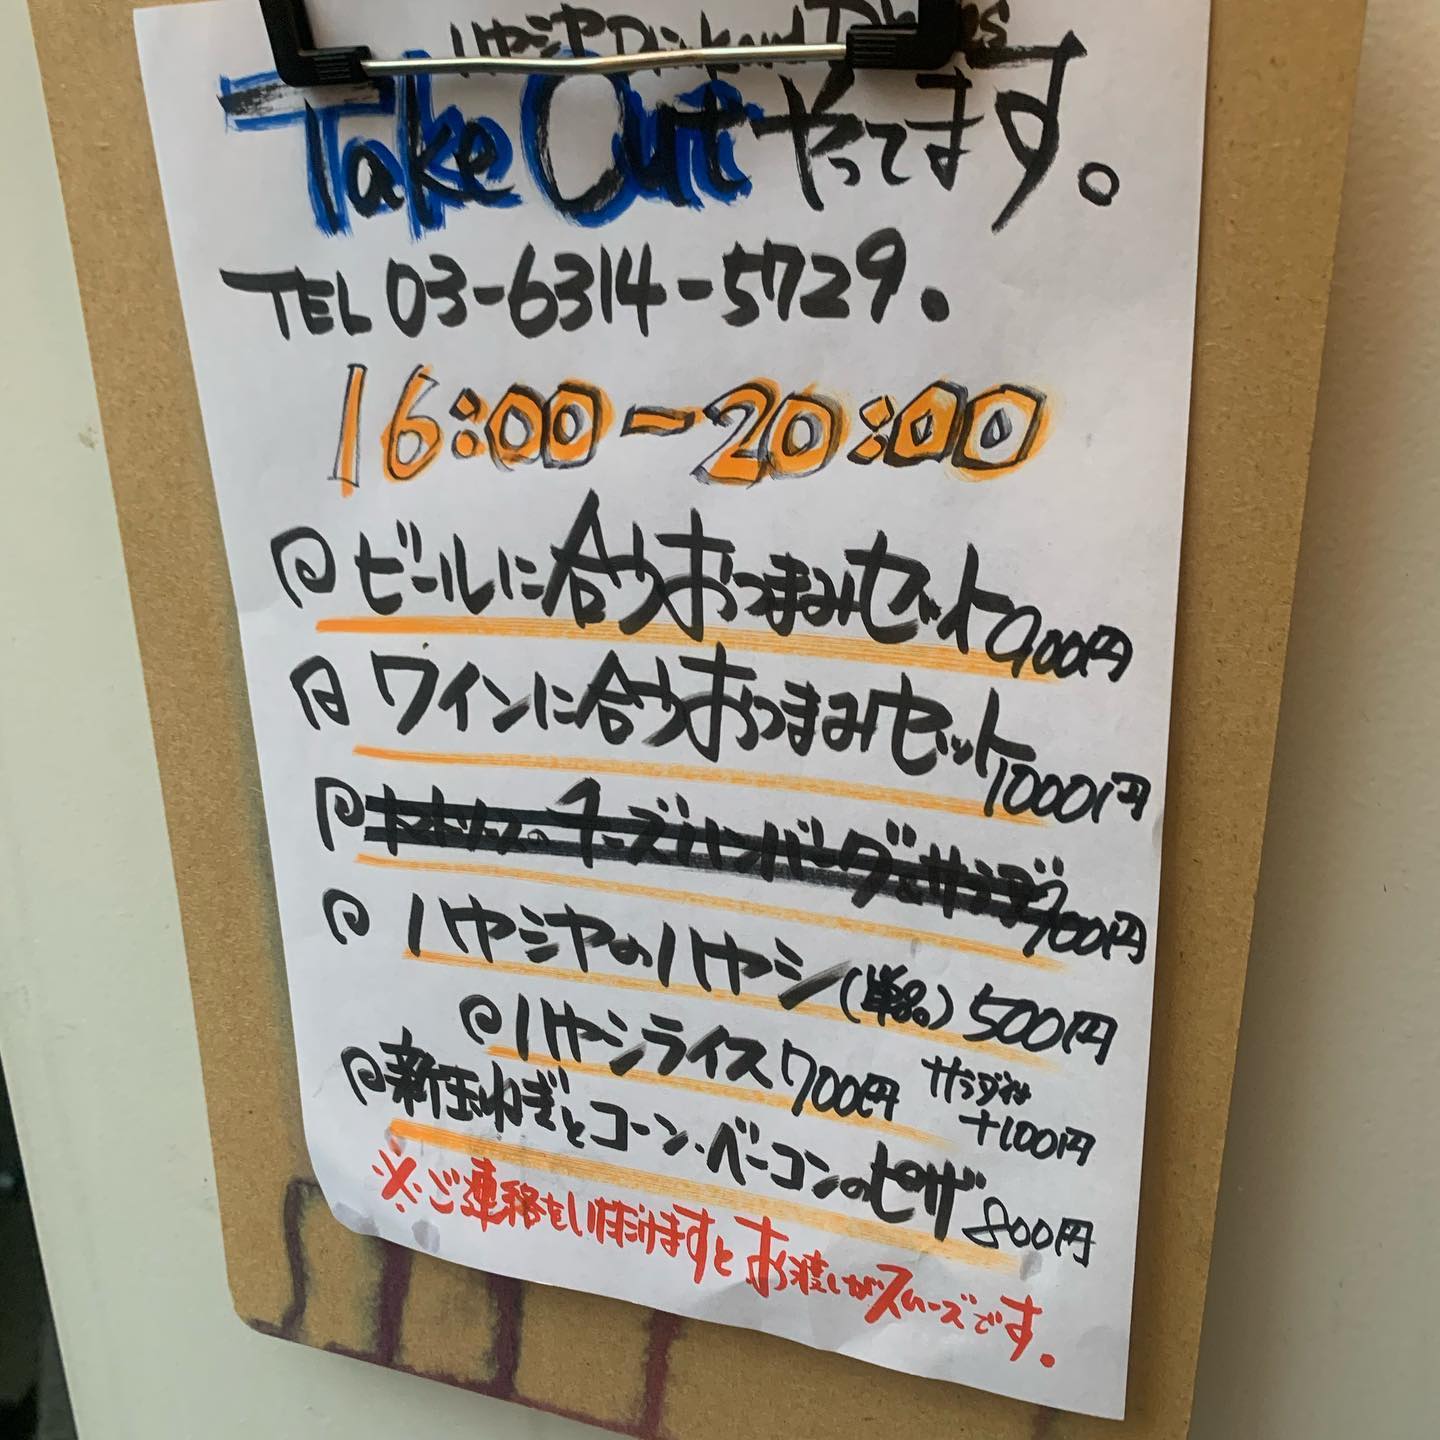 ハヤシヤ Drink and Dishes
Take Out やってます。
TEL 03-6314-5729。
16:00-20:00
ビールに合うおつまみセット 900円
ワインに合うおつまみセット 1000円
トマトソースのチーズハンバーグとサラダ 900円
ハヤシヤのハヤシ(単品) 500円
ハヤシライス 700円 サラダ付 +100円
新玉ねぎとコーン・ベーコンのピザ 800円
※ご連絡をいただけますとお渡しがスムーズです。